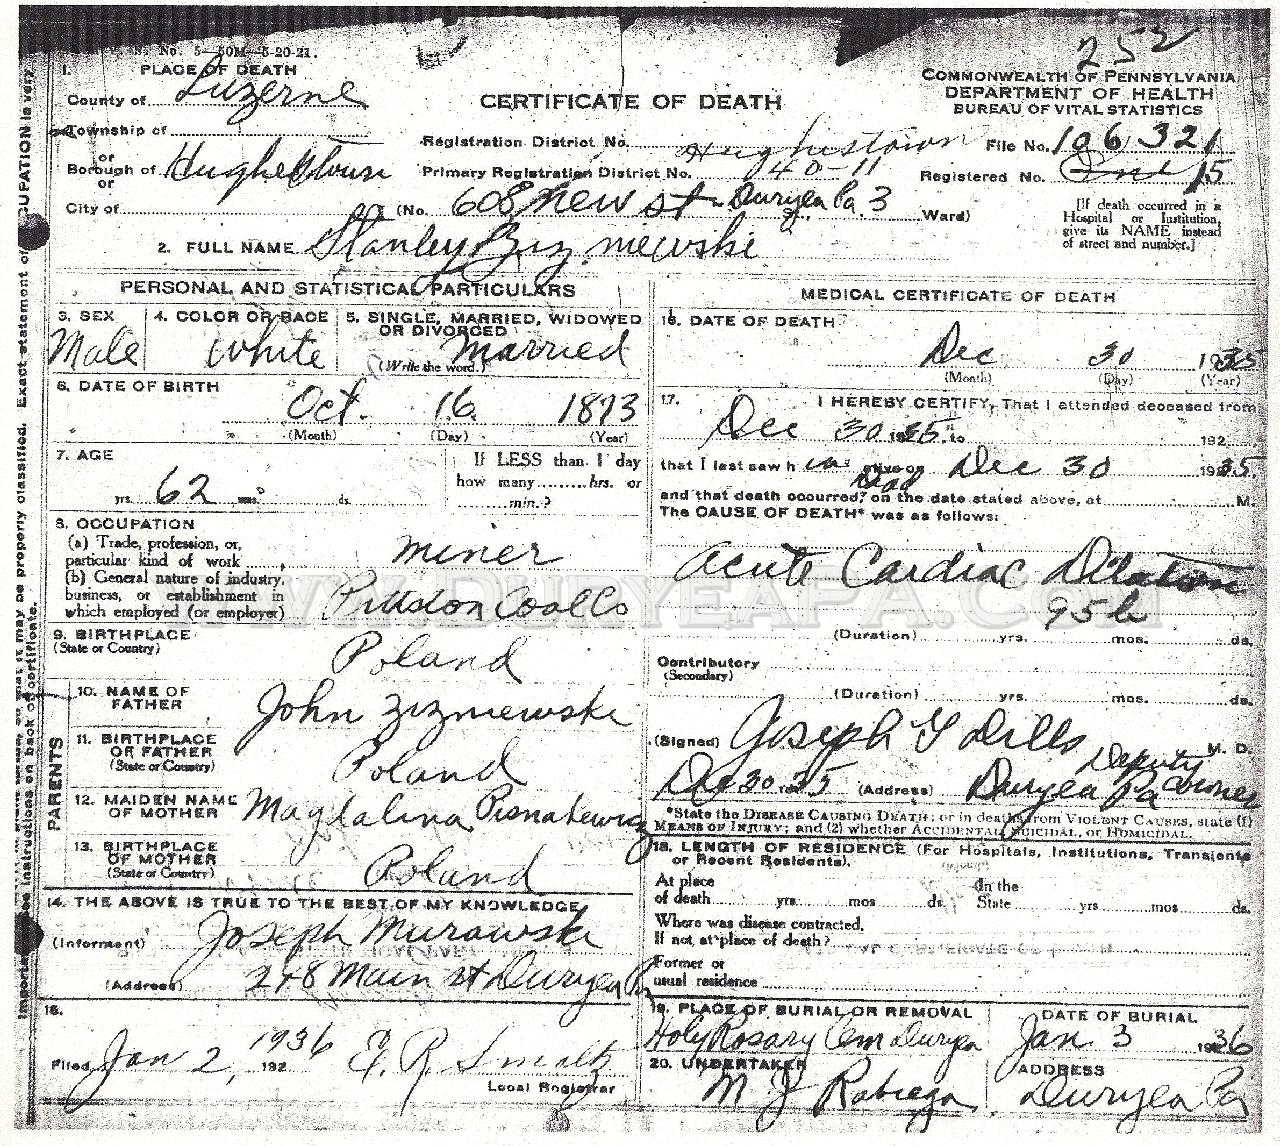 252
V. S. No. 5—50M—5-20-21.
1. PLACE OF DEATH
County of Luzerne
Township of
or
Borough of Hughestown
or
City of
CERTIFICATE OF DEATH
Registration District No. Hughestown
Primary Registration District No. 40-11
(No. 608 New st. Duryea Pa. 3 Ward)
COMMONWEALTH OF PENNSYLVANIA
DEPARTMENT OF HEALTH
BUREAU OF VITAL STATISTICS
File No. 106321
Registered No. 15
[If death occurred in a
Hospital or Institution,
give its NAME instead
of street and number.]
2. FULL NAME Stanley Zizniewski
PERSONAL AND STATISTICAL PARTICULARS
3. SEX
Male
4. COLOR OR RACE
White
5. SINGLE, MARRIED, WIDOWED
OR DIVORCED
(Write the word.) Married
6. DATE OF BIRTH
Oct. 16 1873
(Month) (Day) (Year)
7. AGE
62 yrs. mos. ds.
If LESS than 1 day
how many hrs. or
min.?
8. OCCUPATION
(a) Trade, profession, or,
particular kind of work miner
(b) General nature of industry,
business, or establishment in
which employed (or employer) Pittston Coal Co
9. BIRTHPLACE
(State or Country) Poland
PARENTS
10. NAME OF
FATHER John Zizniewski
11. BIRTHPLACE
OF FATHER
(State or Country) Poland
12. MAIDEN NAME
OF MOTHER Magdalina
13. BIRTHPLACE
OF MOTHER
(State or Country) Poland
14. THE ABOVE IS TRUE TO THE BEST OF MY KNOWLEDGE
(Informent) Joseph Murawski
(Address) 248 Main st Duryea Pa
15.
Filed Jan 2, 1936 192 E. R. Smaltz
Local Registrar
MEDICAL CERTIFICATE OF DEATH
16. DATE OF DEATH
Dec 30 1935
(Month) (Day) (Year)
17. I HEREBY CERTIFY, That I attended deceased from
Dec 30 1935 to 192
that I last saw him alive on Dec 30 1935
Dead
and that death occurred, on the date stated above, at M.
The CAUSE OF DEATH* was as follows:
Acute Cardiac Dilation
95b
(Duration) yrs. mos. ds.
Contributory
(Secondary)
(Duration) yrs. mos. ds.
(Signed) Joseph T Dills M. D.
Deputy Coroner
Dec 30 1935 (Address) Duryea Pa
*State the DISEASE CAUSING DEATH; or in deaths from VIOLENT CAUSES, state (1)
MEANS OF INJURY; and (2) whether ACCIDENTAL, SUICIDAL, or HOMICIDAL.
18. LENGTH OF RESIDENCE (For Hospitals, Institutions, Transients
or Recent Residents).
At place
of death yrs. mos ds.
In the
State yrs mos ds.
Where was disease contracted,
If not at place of death?
Former or
usual residence
19. PLACE OF BURIAL OR REMOVAL
Holy Rosary Cem Duryea
DATE OF BURIAL
Jan 3 1936
20. UNDERTAKER
M J Rabiega
ADDRESS
Duryea Pa
WWW.DURYEAPA.COM